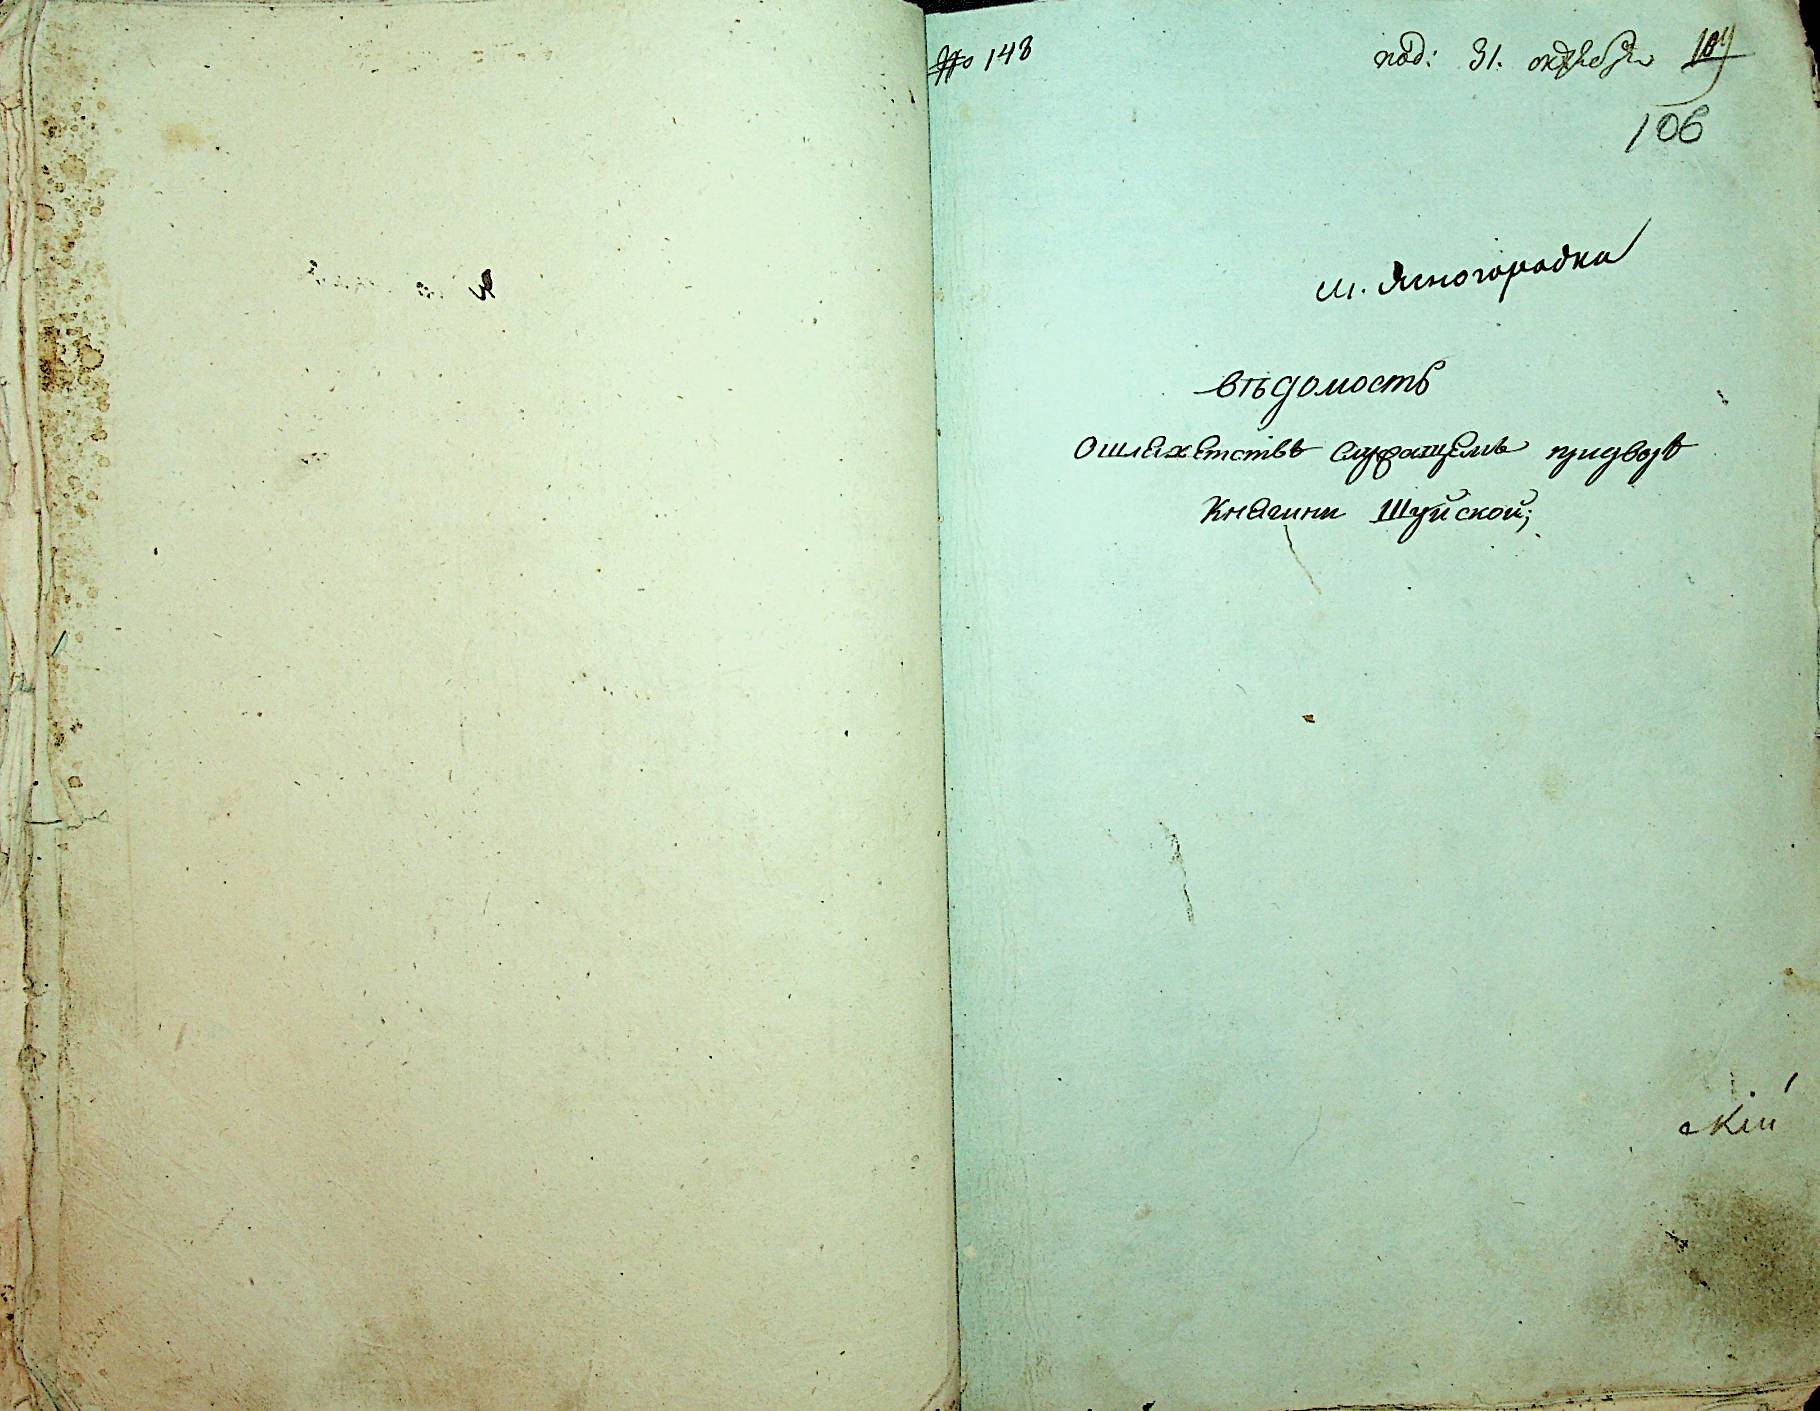 № 148
под: 31. октября 104
106
м. Ясногородка
вѣдомость
Ошляхетствѣ служащемъ придворѣ
Княгини Шуйской;
скій